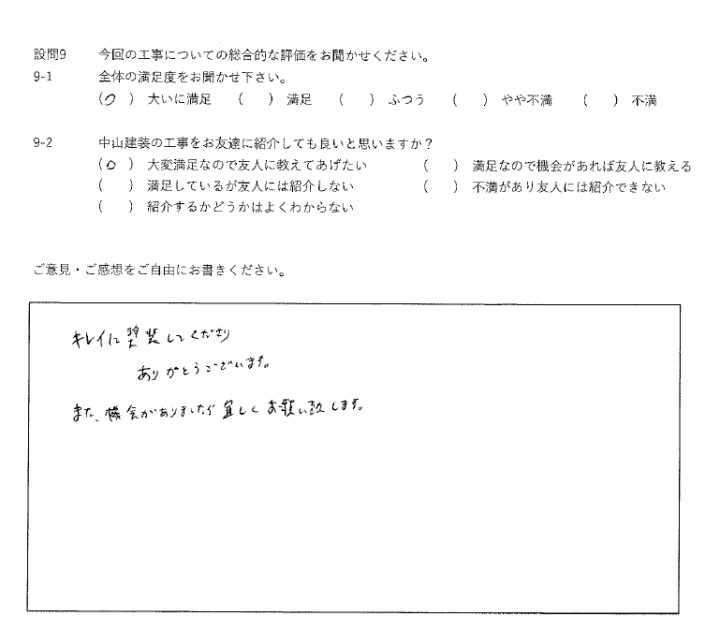 設問9　今回の工事についての総合的な評価をお聞かせください。
9-1　全体の満足度をお聞かせ下さい。
（○）大いに満足　（　）満足　（　）ふつう　（　）やや不満　（　）不満
9-2　中山建装の工事をお友達に紹介しても良いと思いますか？
（○）大変満足なので友人に教えてあげたい　（　）満足なので機会があれば友人に教える
（　）満足しているが友人には紹介しない　（　）不満があり友人には紹介できない
（　）紹介するかどうかはよくわからない
ご意見・ご感想をご自由にお書きください。
キレイに塗装してくださり
ありがとうございます。
また、機会がありましたら宜しくお願い致します。